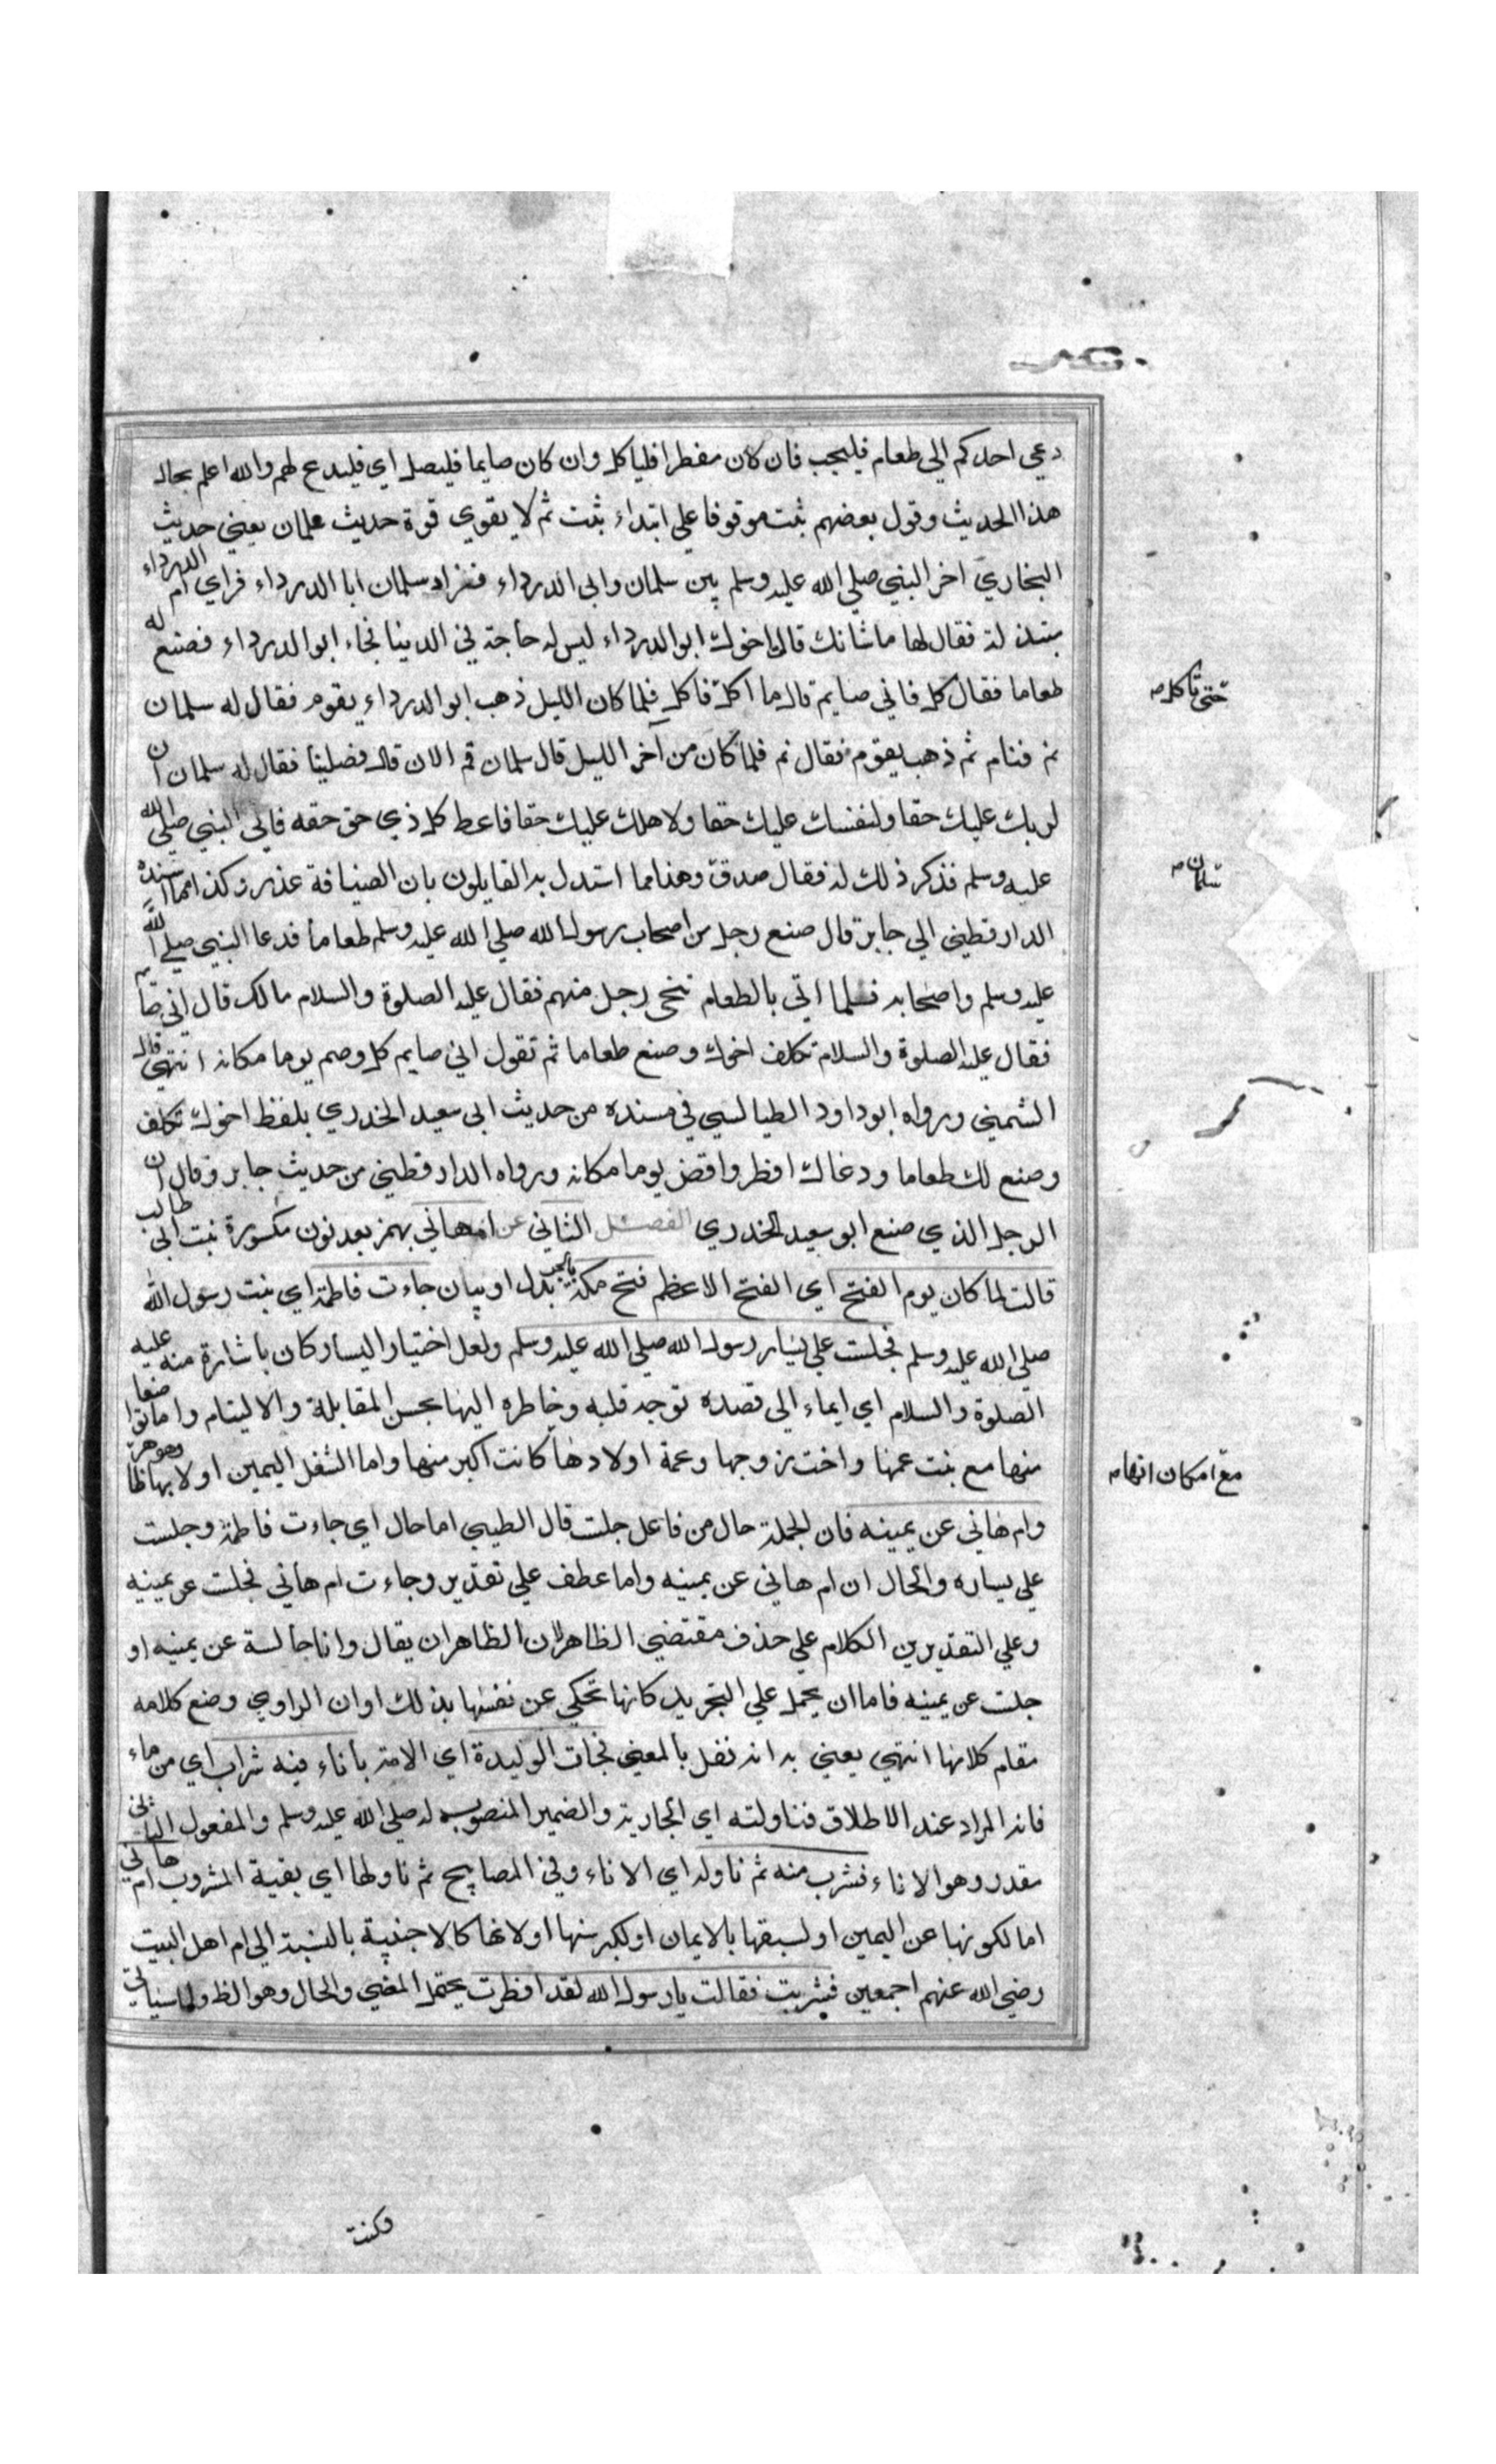 دعي احدكم الي طعام فليجب فان كان مفطرا فلياكل وان كان صايما فليصل اي فليدع لهم والله اعلم بحال
هذا الحديث وقول بعضهم ثبت موقوفا علي ابتداء ثبت ثم لا يقوي قوة حديث سلمان يعني حديث
البخاري اخر النبي صلي الله عليه وسلم بين سلمان وابي الدرداء فزار سلمان ابا الدرداء فراي ام الدرداء
متبذلة فقال لها ما شانك قالت اخوك ابو الدرداء ليس له حاجة في الدينا فجاء ابو الدرداء فصنع له
طعاما فقال كل فاني صايم قال ما اكل فاكل فلما كان الليل ذهب ابو الدرداء يقوم فقال له سلمان
حتي تاكل صح
نم فنام ثم ذهب يقوم فقال نم فلما كان من آخر الليل قال سلمان قم الان قال فصلينا فقال له سلمان ان
لربك عليك حقا ولنفسك عليك حقا ولاهلك عليك حقا فاعط كل ذي حق حقه فاتي النبي صلي الله
عليه وسلم فذكر ذلك له فقال صدق وهذا مما استدل به القايلون بان الضيافة عذر وكذا مما اسنده
سلمان صح
الدارقطني الي جابر قال صنع رجل من اصحاب رسول الله صلي الله عليه وسلم طعاما فدعا النبي صلي الله
عليه وسلم واصحابه فلما اتي بالطعام تنحي رجل منهم فقال عليه الصلوة والسلام مالك قال اني صايم
فقال عليه الصلوة والسلام تكلف اخوك وصنع طعاما ثم تقول اني صايم كل وصم يوما مكانه انتهي قال
الشمني ورواه ابو داود الطيالسي في مسنده من حديث ابي سعيد الخدري بلفظ اخوك تكلف
وصنع لك طعاما ودعاك افطر واقض يوما مكانه ورواه الدارقطني من حديث جابر وقال ان
الرجل الذي صنع ابو سعيد الخدري الفصل الثاني عن ام هاني بهمز بعد نون مكسورة بنت ابي طالب
قالت لما كان يوم الفتح اي الفتح الاعظم فتح مكة بالجر بدل او بيان جاءت فاطمة اي بنت رسول الله
صلي الله عليه وسلم فجلست علي يسار رسول الله صلي الله عليه وسلم ولعل اختيار اليسار كان باشارة منه عليه
الصلوة والسلام اي ايماء الي قصده توجه قلبه وخاطره اليها بحسن المقابلة والاليتام واما تواضعا
منها مع بنت عمها واخت زوجها وعمة اولادها كانت اكبر منها واما الشغل اليمين اولا بها وهو ظاهر
مع امكان انها صح
وام هاني عن يمينه فان الجملة حال من فاعل جلست قال الطيبي اما حال اي جاءت فاطمة وجلست
علي يساره والحال ان ام هاني عن يمينه واما عطف علي تقدير وجاءت ام هاني فجلست عن يمينه
وعلي التقديرين الكلام علي حذف مقتضي الظاهر لان الظاهر ان يقال وانا جالسة عن يمينه او
جلست عن يمينه فاما ان يحمل علي التجريد كانها تحكي عن نفسها بذلك او ان الراوي وضع كلامه
مقام كلامها انتهي يعني به انه نقل بالمعني فجات الوليدة اي الامة باناء فيه شراب اي من ماء
فانه المراد عند الاطلاق فناولته اي الجارية والضمير المنصوب له صلي الله عليه وسلم والمفعول الثاني
مقدر وهو الاناء فشرب منه ثم ناوله اي الاناء وفي المصابيح ثم ناولها اي بقية المشروب ام هاني
اما لكونها عن اليمين او لسبقها بالايمان او لكبر سنها او لانها كالاجنبية بالنسبة الي ام اهل البيت
رضي الله عنهم اجمعين فشربت فقالت يا رسول الله لقد افطرت يحتمل المضي والحال وهو الظ ولما سياتي
وكنت